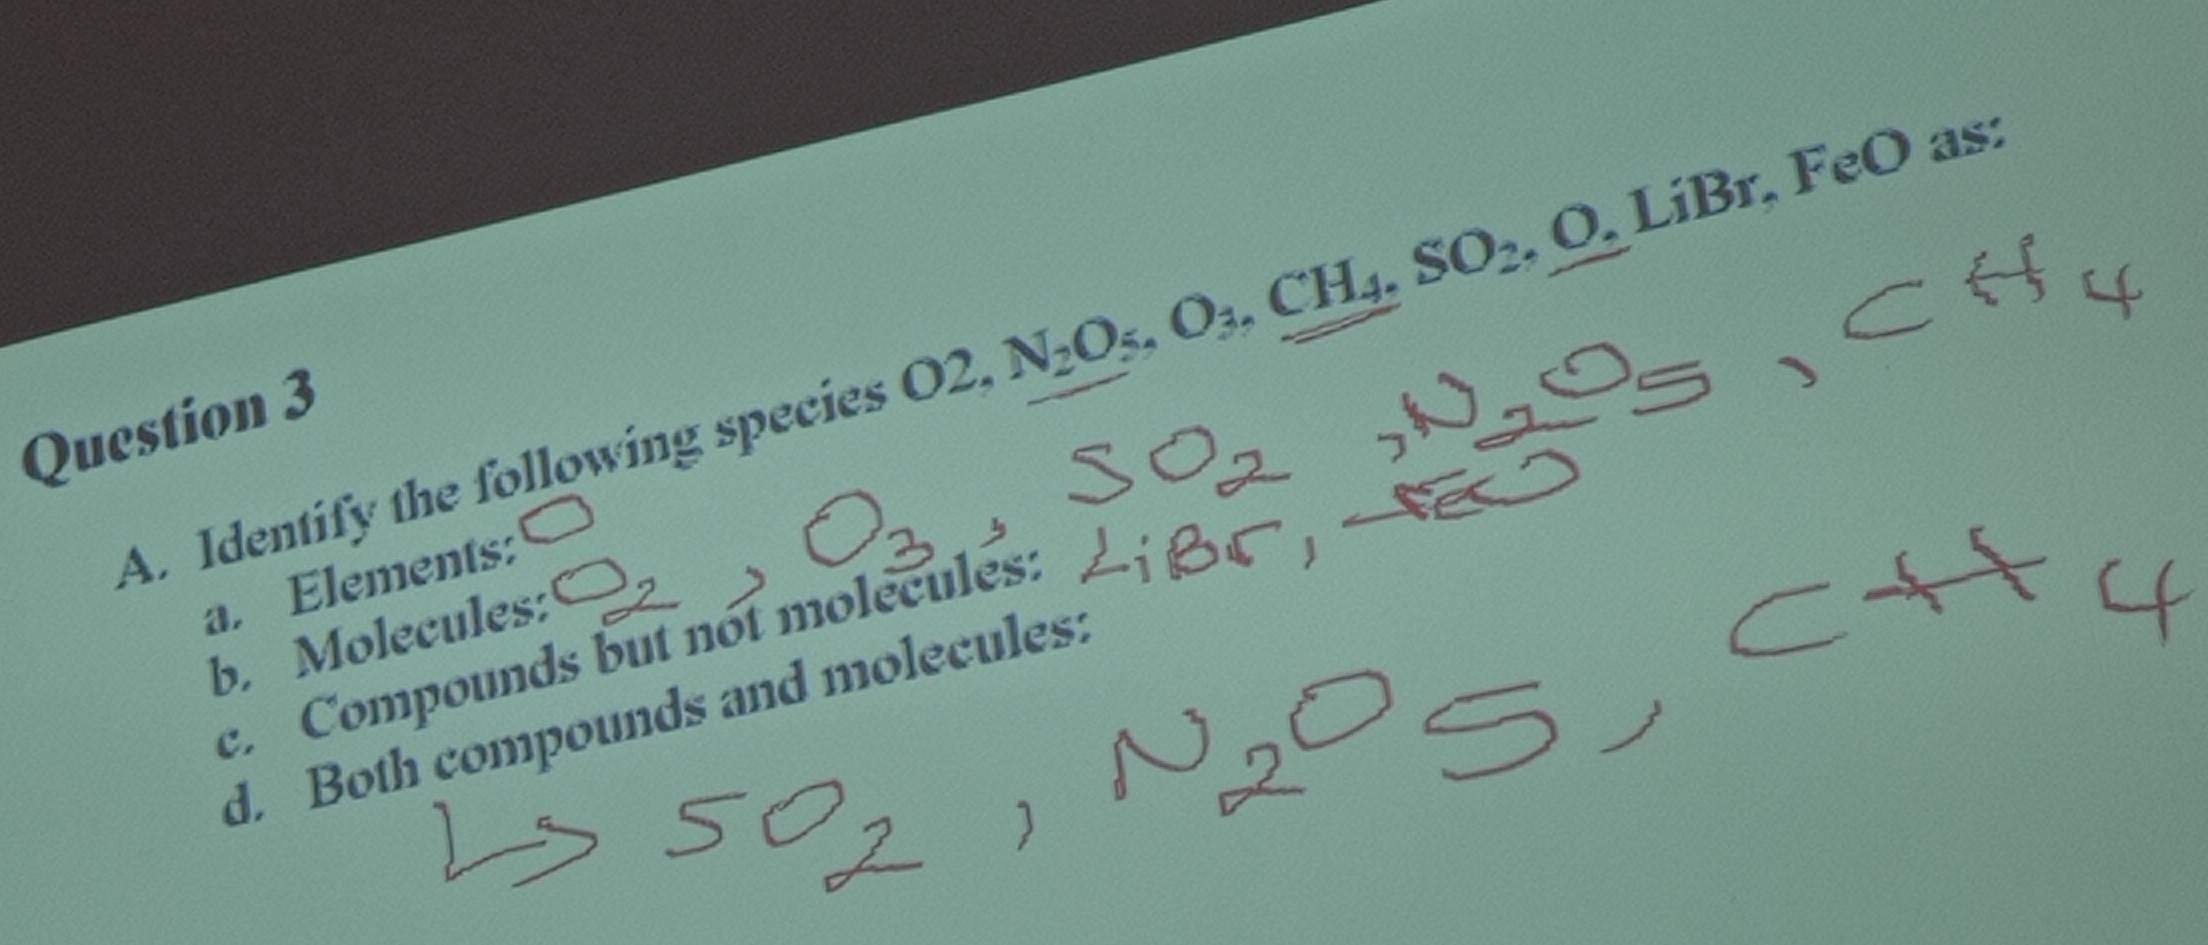 Question 3
A. Identify the following species O2, N₂O₅, O₃, CH₄, SO₂, O, LiBr, FeO as:
a. Elements: O
b. Molecules: O₂, O₃, SO₂, N₂O₅, CH₄
c. Compounds but not molecules: LiBr, FeO
d. Both compounds and molecules:
↳ SO₂, N₂O5, CH₄